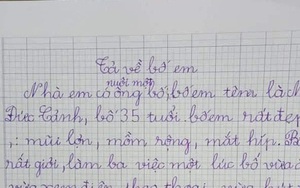 Tả về bố em
nuôi mớn
Nhà em có ông bố, bố em tên là
Đức Cảnh, bố 35 tuổi. bố em rất đẹp
,: mũi lợn, mồm rộng, mắt híp. B
rất giỏi, làm ba việc một lúc bố vừa
vừa xem điện thoại